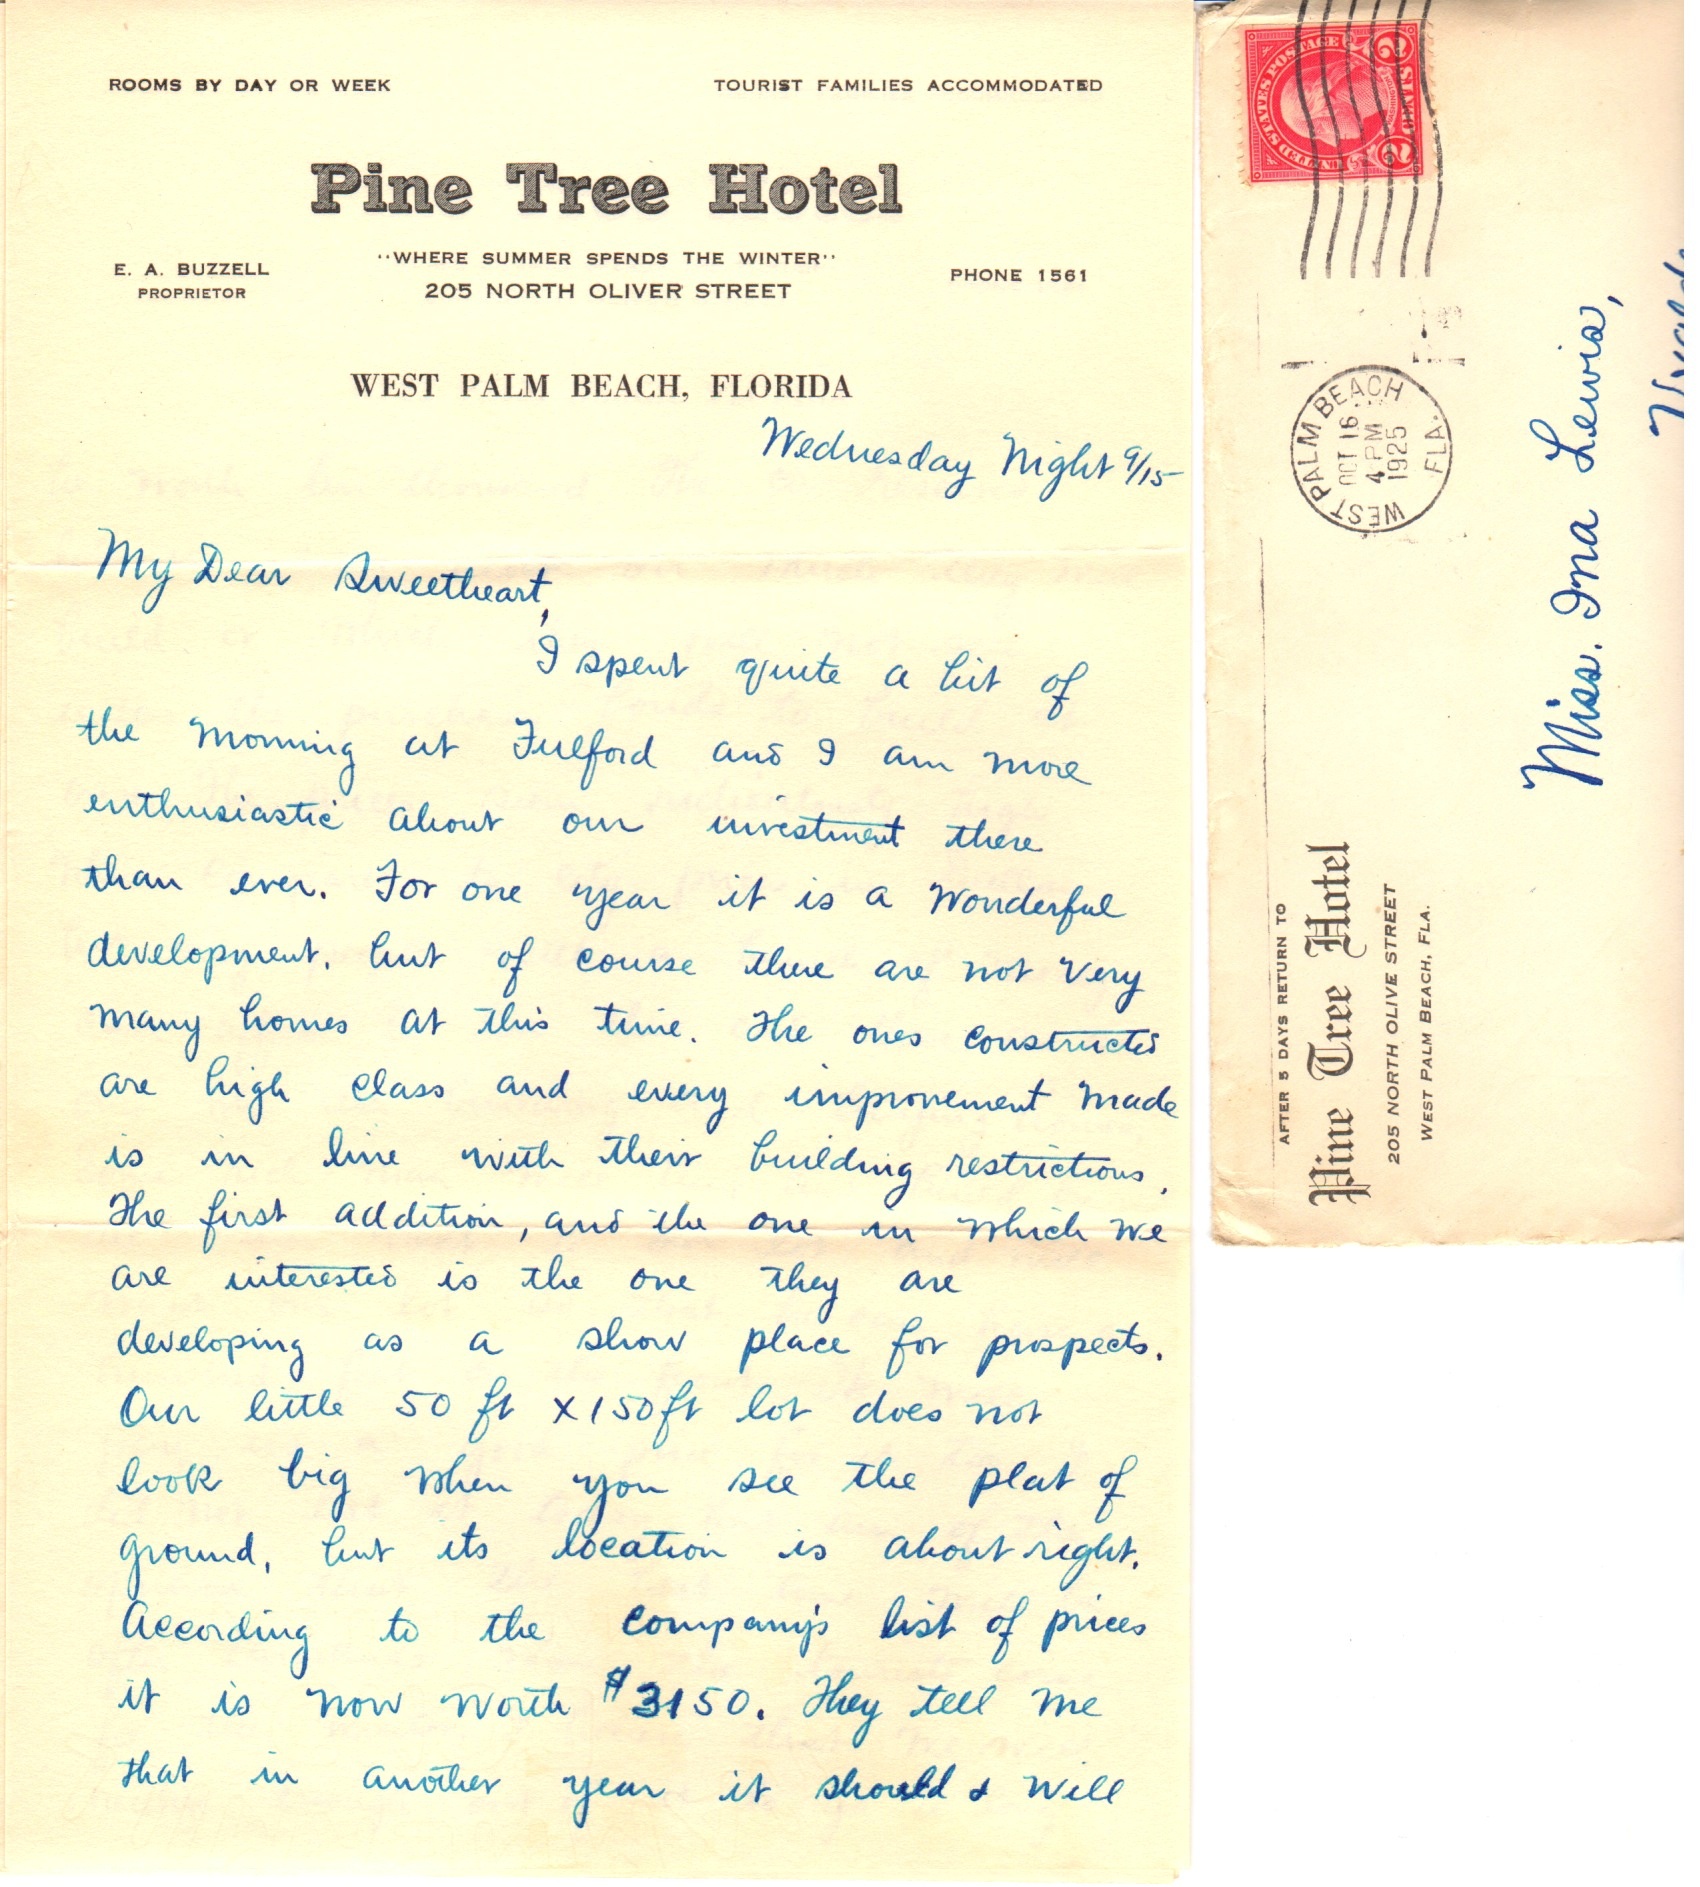 ROOMS BY DAY OR WEEK TOURIST FAMILIES ACCOMMODATED
Pine Tree Hotel
E. A. BUZZELL
PROPRIETOR
"WHERE SUMMER SPENDS THE WINTER"
205 NORTH OLIVER STREET
PHONE 1561
WEST PALM BEACH, FLORIDA
Wednesday Night 9/15
My Dear Sweetheart,
I spent quite a bit of
the morning at Fulford and I am more
enthusiastic about our investment there
than ever. For one year it is a wonderful
development, but of course there are not very
many homes at this time. The ones constructed
are high class and every improvement made
is in line with their building restrictions.
The first addition, and the one in which we
are interested is the one they are
developing as a show place for prospects.
Our little 50 ft X 150 ft lot does not
look big when you see the plat of
ground, but its location is about right.
According to the company's list of prices
it is now worth $3150. They tell me
that in another year it should & will
UNITED STATES POSTAGE
2 CENTS 2
WEST PALM BEACH
FLA.
OCT 16
4 PM
1925
Miss. Ina Lewis,
AFTER 5 DAYS RETURN TO
Pine Tree Hotel
205 NORTH OLIVE STREET
WEST PALM BEACH, FLA.